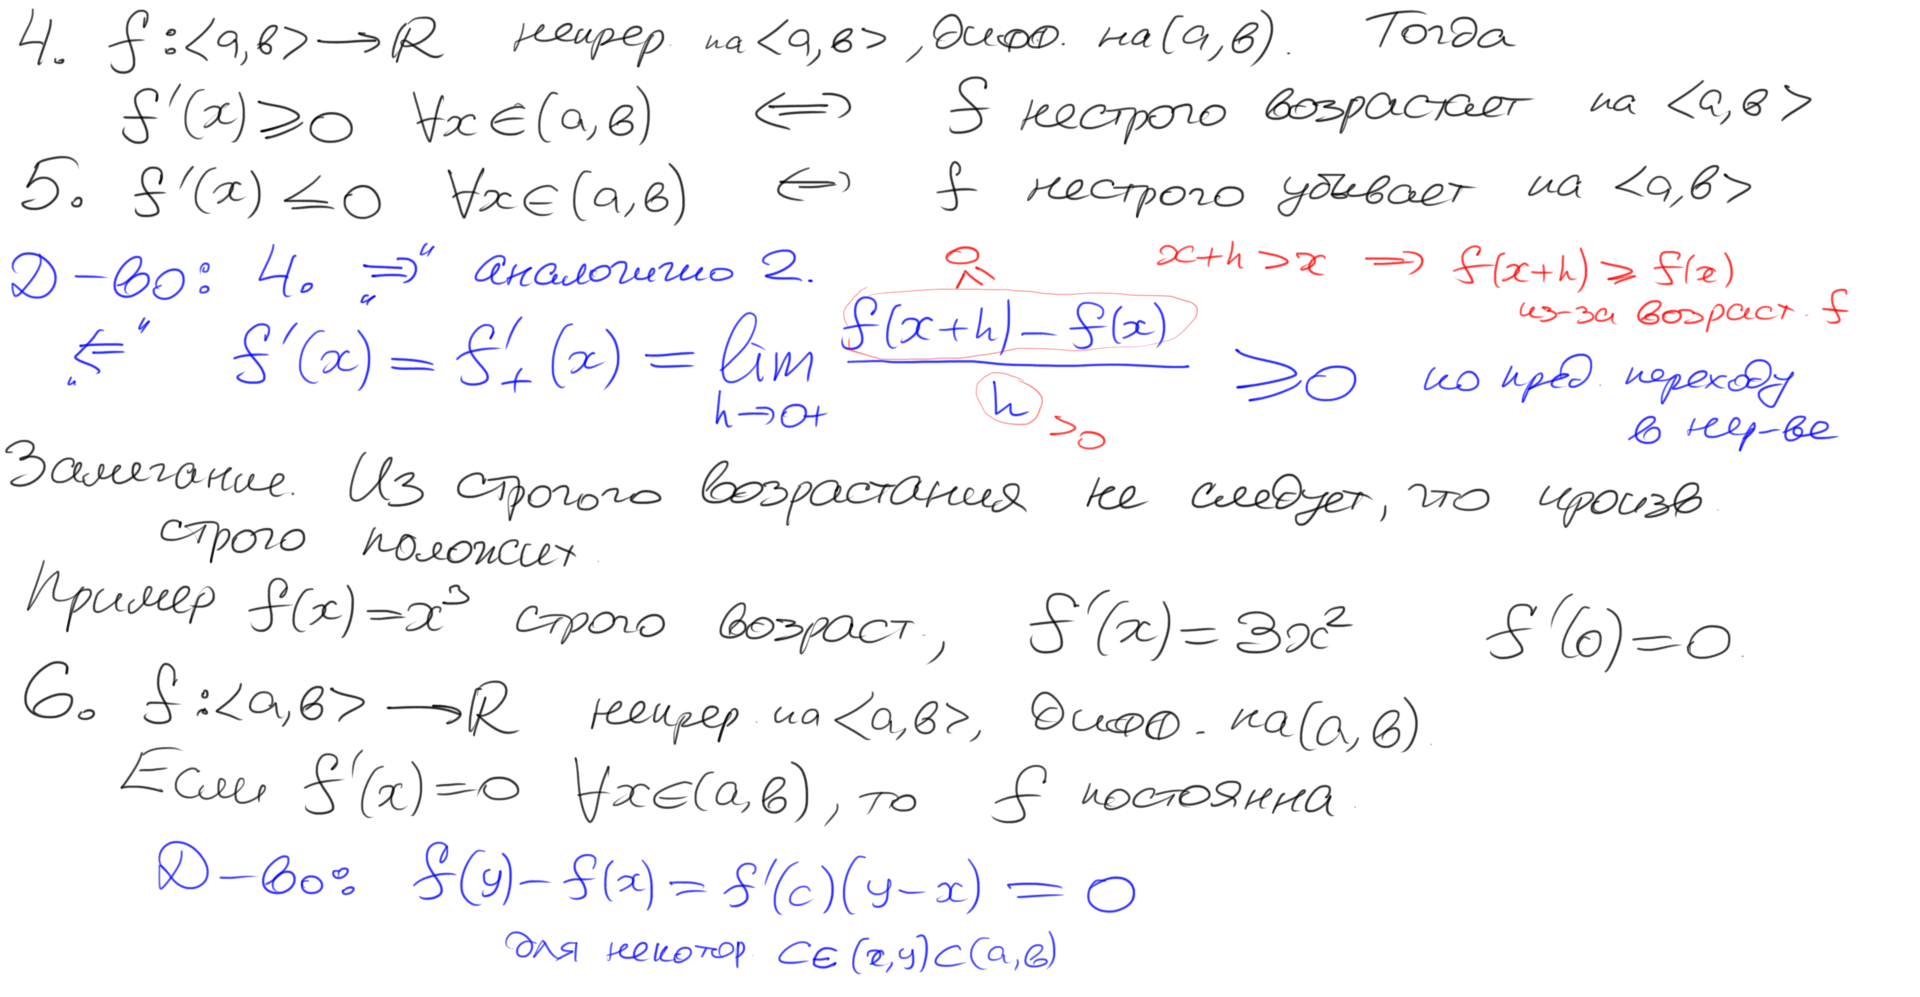 4. f:<a,b>→ℝ непрер на <a,b>, дифф. на (a,b). Тогда
f'(x)⩾0 ∀x∈(a,b) ⇔ f нестрого возрастает на <a,b>
5. f'(x)≤0 ∀x∈(a,b) ⇔ f нестрого убывает на <a,b>
Д-во: 4. „⇒“ аналогично 2.
0
⩽
x+h>x ⇒ f(x+h)⩾f(x)
из-за возраст. f
„⇐“ f'(x) = f'₊(x) = lim_{h→0+} (f(x+h)-f(x))/h ⩾0 по пред. переходу
>0
в нер-ве
Замечание. Из строгого возрастания не следует, что произв.
строго положит.
Пример f(x)=x³ строго возраст., f'(x)=3x² f'(0)=0.
6. f:<a,b>→ℝ непрер. на <a,b>, дифф. на (a,b).
Если f'(x)=0 ∀x∈(a,b), то f постоянна.
Д-во: f(y)-f(x)=f'(c)(y-x)=0
для некотор. c∈(x,y)⊂(a,b)